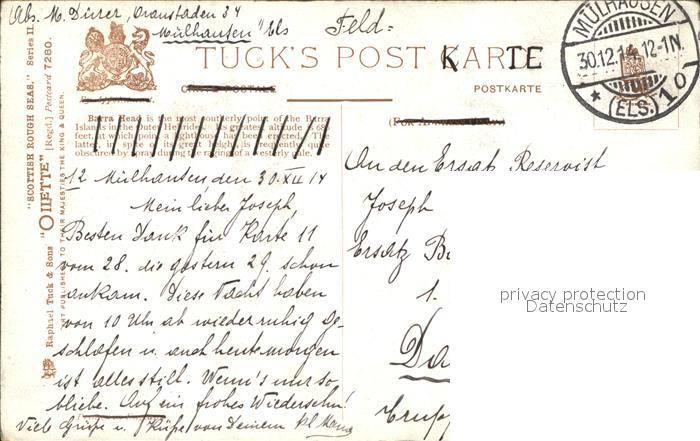 Abs. M. Dürrer, Oranstaden 34
Mülhausen Els
Feld-
MÜLHAUSEN
30.12.14. 12-1N.
* (ELS.) 10
TUCK'S POST KARTE
CARTE POSTALE
POSTKARTE
"SCOTTISH ROUGH SEAS." Series II.
"OILETTE" [Regd.] Postcard 7280.
Raphael Tuck & Sons
ART PUBLISHERS TO THEIR MAJESTIES THE KING & QUEEN.
Barra Head is the most southerly point of the Barra
Islands in the Outer Hebrides. Its greatest altitude is 683
feet, at which point a lighthouse has been erected. The
latter, in spite of its great height, is frequently quite
obscured by spray during the raging of a westerly gale.
12 Mülhausen, den 30. XII 14
Mein lieber Joseph,
Besten Dank für Karte 11
vom 28. die gestern 29. schon
ankam. Diese Nacht haben
von 10 Uhr ab wieder ruhig ge-
schlafen u. auch heute morgen
ist alles still. Wenn's nur so
bliebe. Auf ein frohes Wiedersehn!
Viele Grüße u. Küße von Deinem
An den Ersatz Reservist
Joseph
Ersatz
1.
Da
privacy protection
Datenschutz